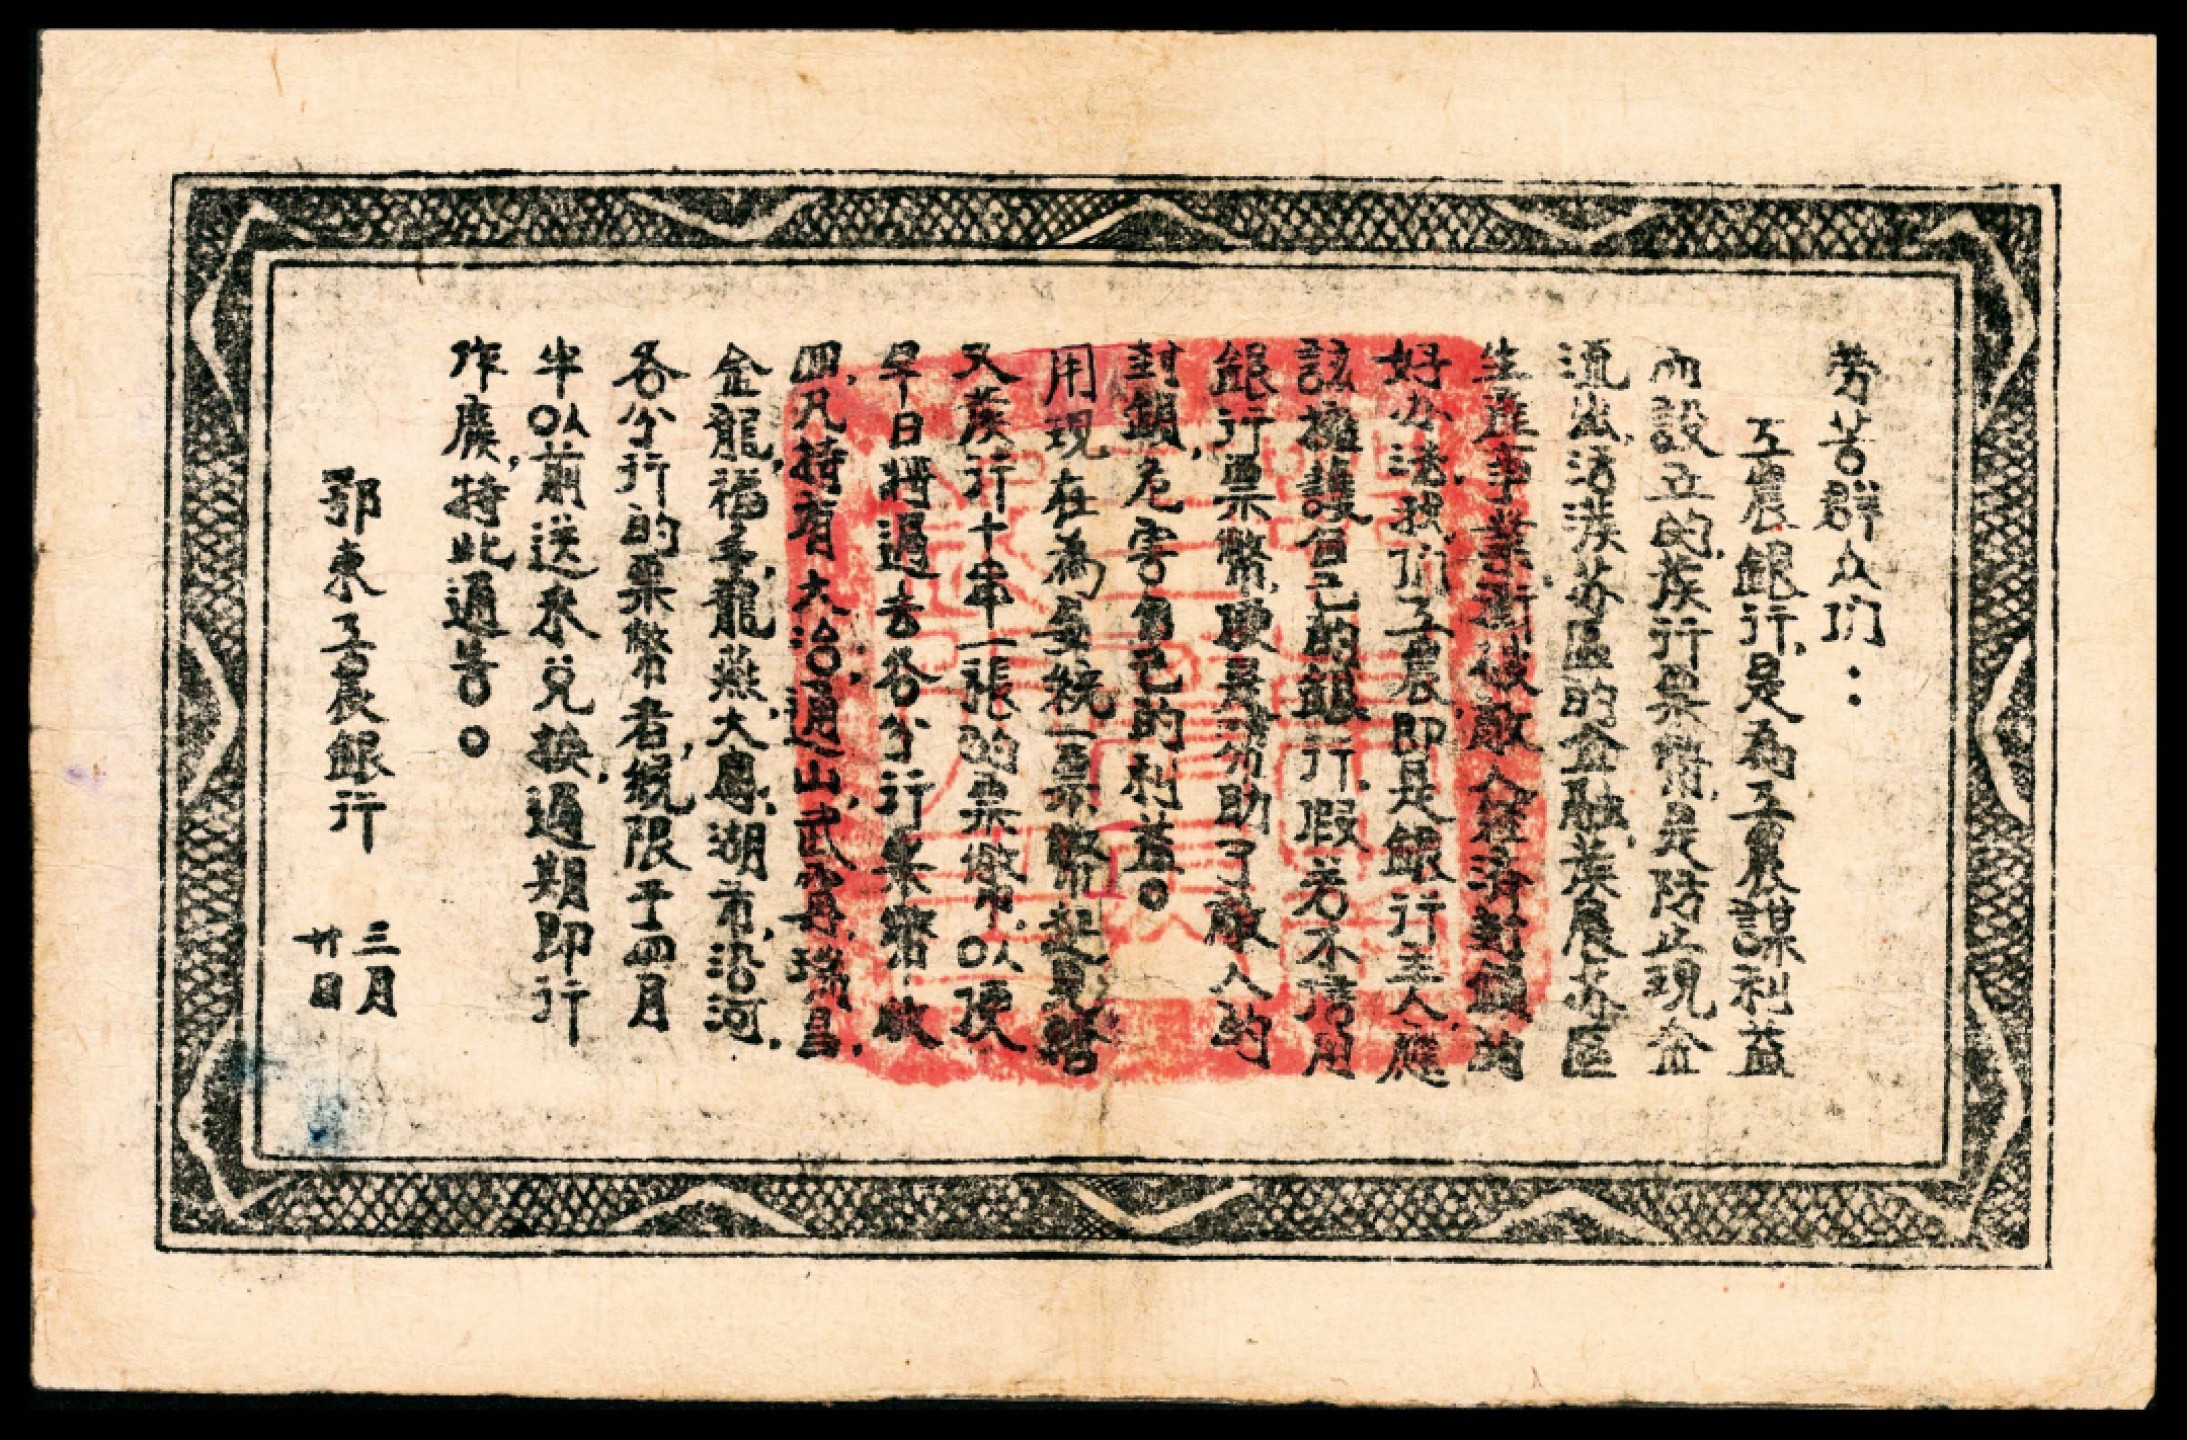 劳苦群众们：
工農銀行,是為工農謀利益
而設立的,发行票幣,是防止現金
流出,活泼苏區的金融,发展苏區
生產事業,衝破敵人經濟封鎖的
好办法,我们工農,即是銀行主人,應
該擁護自己的銀行,假若不信用
銀行票幣,硬是帮助了敵人的
封鎖,危害自己的利益。
用現在為要統一票幣起見,
又发行十串一張的票幣,以便
早日將過去各分行票幣收
回,凡持有大冶,通山,武,瑞昌,
金龍,福,龍燕,大,湖市,沿河,
各分行的票幣者,統限于四月
半以前送來兑換,過期即行
作廢,特此通告。
鄂東工農銀行
三月
廿日